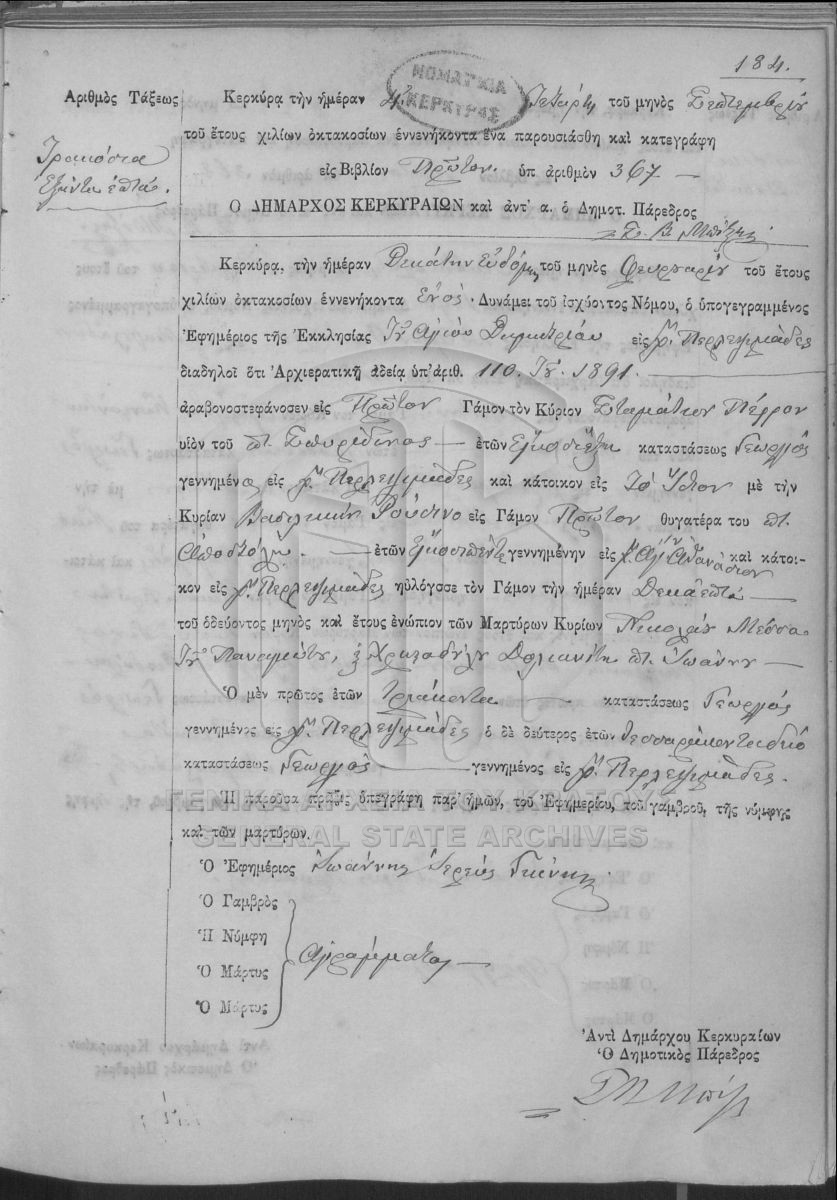 184.
ΝΟΜΑΡΧΙΑ
ΚΕΡΚΥΡΑΣ
Ἀριθμὸς Τάξεως
Τριακόσια
Ἑξήντα ἑπτά.
Κερκύρᾳ τὴν ἡμέραν 4. Τετάρτῃ τοῦ μηνὸς Σεπτεμβρίου
τοῦ ἔτους χιλίων ὀκτακοσίων ἐννενήκοντα ἕνα παρουσιάσθη καὶ κατεγράφη
εἰς Βιβλίον Πρῶτον. ὑπ ἀριθμὸν 367 —
Ο ΔΗΜΑΡΧΟΣ ΚΕΡΚΥΡΑΙΩΝ καὶ ἀντ' α. ὁ Δημοτ. Πάρεδρος
Κερκύρᾳ, τὴν ἡμέραν Δεκάτην Εὐδόμην τοῦ μηνὸς Φευρουαρίου τοῦ ἔτους
χιλίων ὀκτακοσίων ἐννενήκοντα Ἑνός. Δυνάμει τοῦ ἰσχύοντος Νόμου, ὁ ὑπογεγραμμένος
Ἐφημέριος τῆς Ἐκκλησίας Τοῦ Ἁγίου Δημητρίου εἰς χ. Περλεψιμάδες
διαδηλοῖ ὅτι Ἀρχιερατικῇ ἀδείᾳ ὑπ' ἀριθ. 110. 1891.
ἀραβονοστεφάνοσεν εἰς Πρῶτον Γάμον τὸν Κύριον Σταμάτιον Πέρρον
υἱὸν τοῦ π. Σπυρίδωνος — ἐτῶν Εἴκοσι ἕξη καταστάσεως Γεωργός
γεννημένος εἰς χ. Περλεψιμάδες καὶ κάτοικον εἰς Τὸ Ἴδιον μὲ τὴν
Κυρίαν Βασιλικὴν Ροῦσινο εἰς Γάμον Πρῶτον θυγατέρα του π.
Ἀποστόλη — ἐτῶν Εἴκοσι πέντε γεννημένην εἰς χ. Ἅγιον Ἀθανάσιον καὶ κάτοι-
κον εἰς χ. Περλεψιμάδες ηὐλόγσσε τὸν Γάμον τὴν ἡμέραν Δεκαεπτά —
τοῦ ὁδεύοντος μηνὸς καὶ ἔτους ἐνώπιον τῶν Μαρτύρων Κυρίων Νικολάου Μέσσα
Τοῦ Παναγιώτου, Δολιανίτη π. Ἰωάννου —
Ὁ μὲν πρῶτος ἐτῶν τριάκοντα — καταστάσεως Γεωργός
γεννημένος εἰς χ. Περλεψιμάδες ὁ δὲ δεύτερος ἐτῶν τεσσαράκοντα δύο
καταστάσεως Γεωργός — γεννημένος εἰς χ. Περλεψιμάδες.
Ἡ παροῦσα πρᾶξις ὑπεγράφη παρ' ἡμῶν, τοῦ Ἐφημερίου, τοῦ γαμβροῦ, τῆς νύμφης
καὶ τῶν μαρτύρων.
ΓΕΝΙΚΑ ΑΡΧΕΙΑ ΤΟΥ ΚΡΑΤΟΥΣ
GENERAL STATE ARCHIVES
Ὁ Ἐφημέριος Ἰωάννης Ἱερεύς
Ὁ Γαμβρὸς
Ἡ Νύμφη
Ὁ Μάρτυς
Ὁ Μάρτυς
Ἀγράμματοι —
Ἀντὶ Δημάρχου Κερκυραίων
Ὁ Δημοτικὸς Πάρεδρος